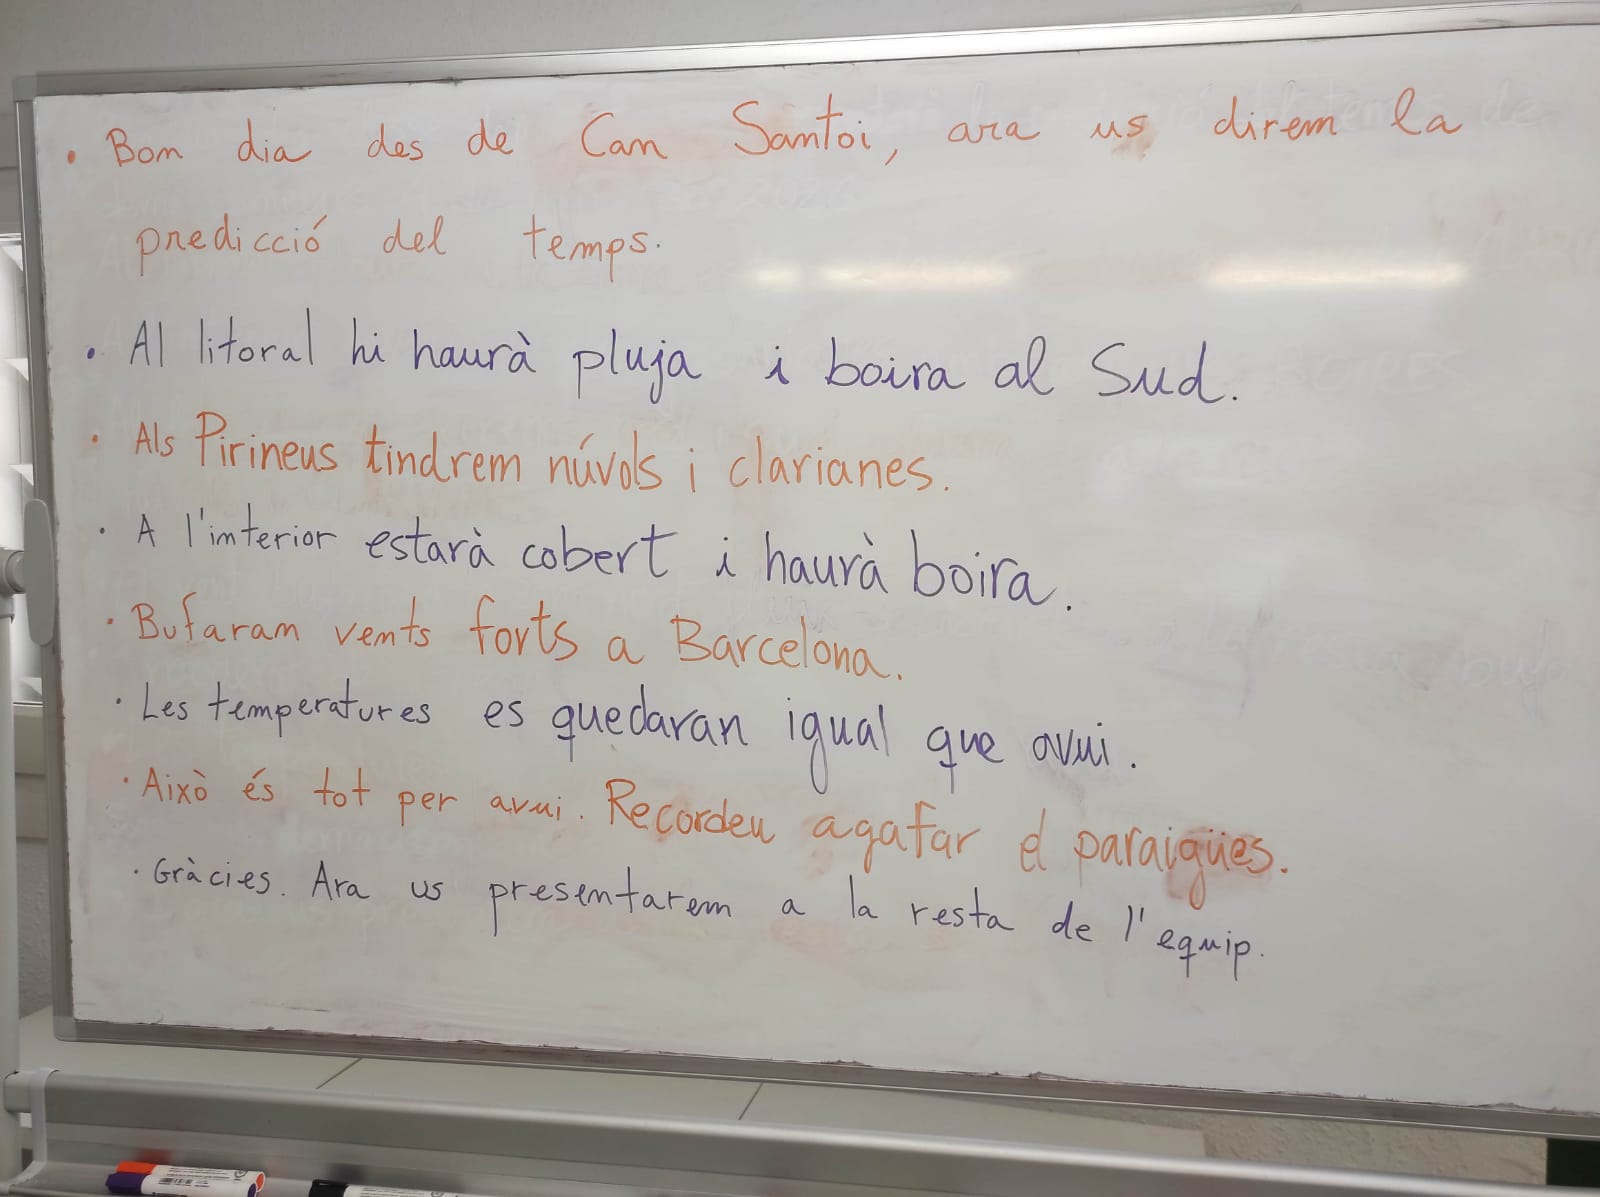 • Bon dia des de Can Santoi, ara us direm la
predicció del temps.
• Al litoral hi haurà pluja i boira al Sud.
• Als Pirineus tindrem núvols i clarianes.
• A l'interior estarà cobert i haurà boira.
• Bufaran vents forts a Barcelona.
• Les temperatures es quedaran igual que avui.
• Això és tot per avui. Recordeu agafar el paraigües.
• Gràcies. Ara us presentarem a la resta de l'equip.